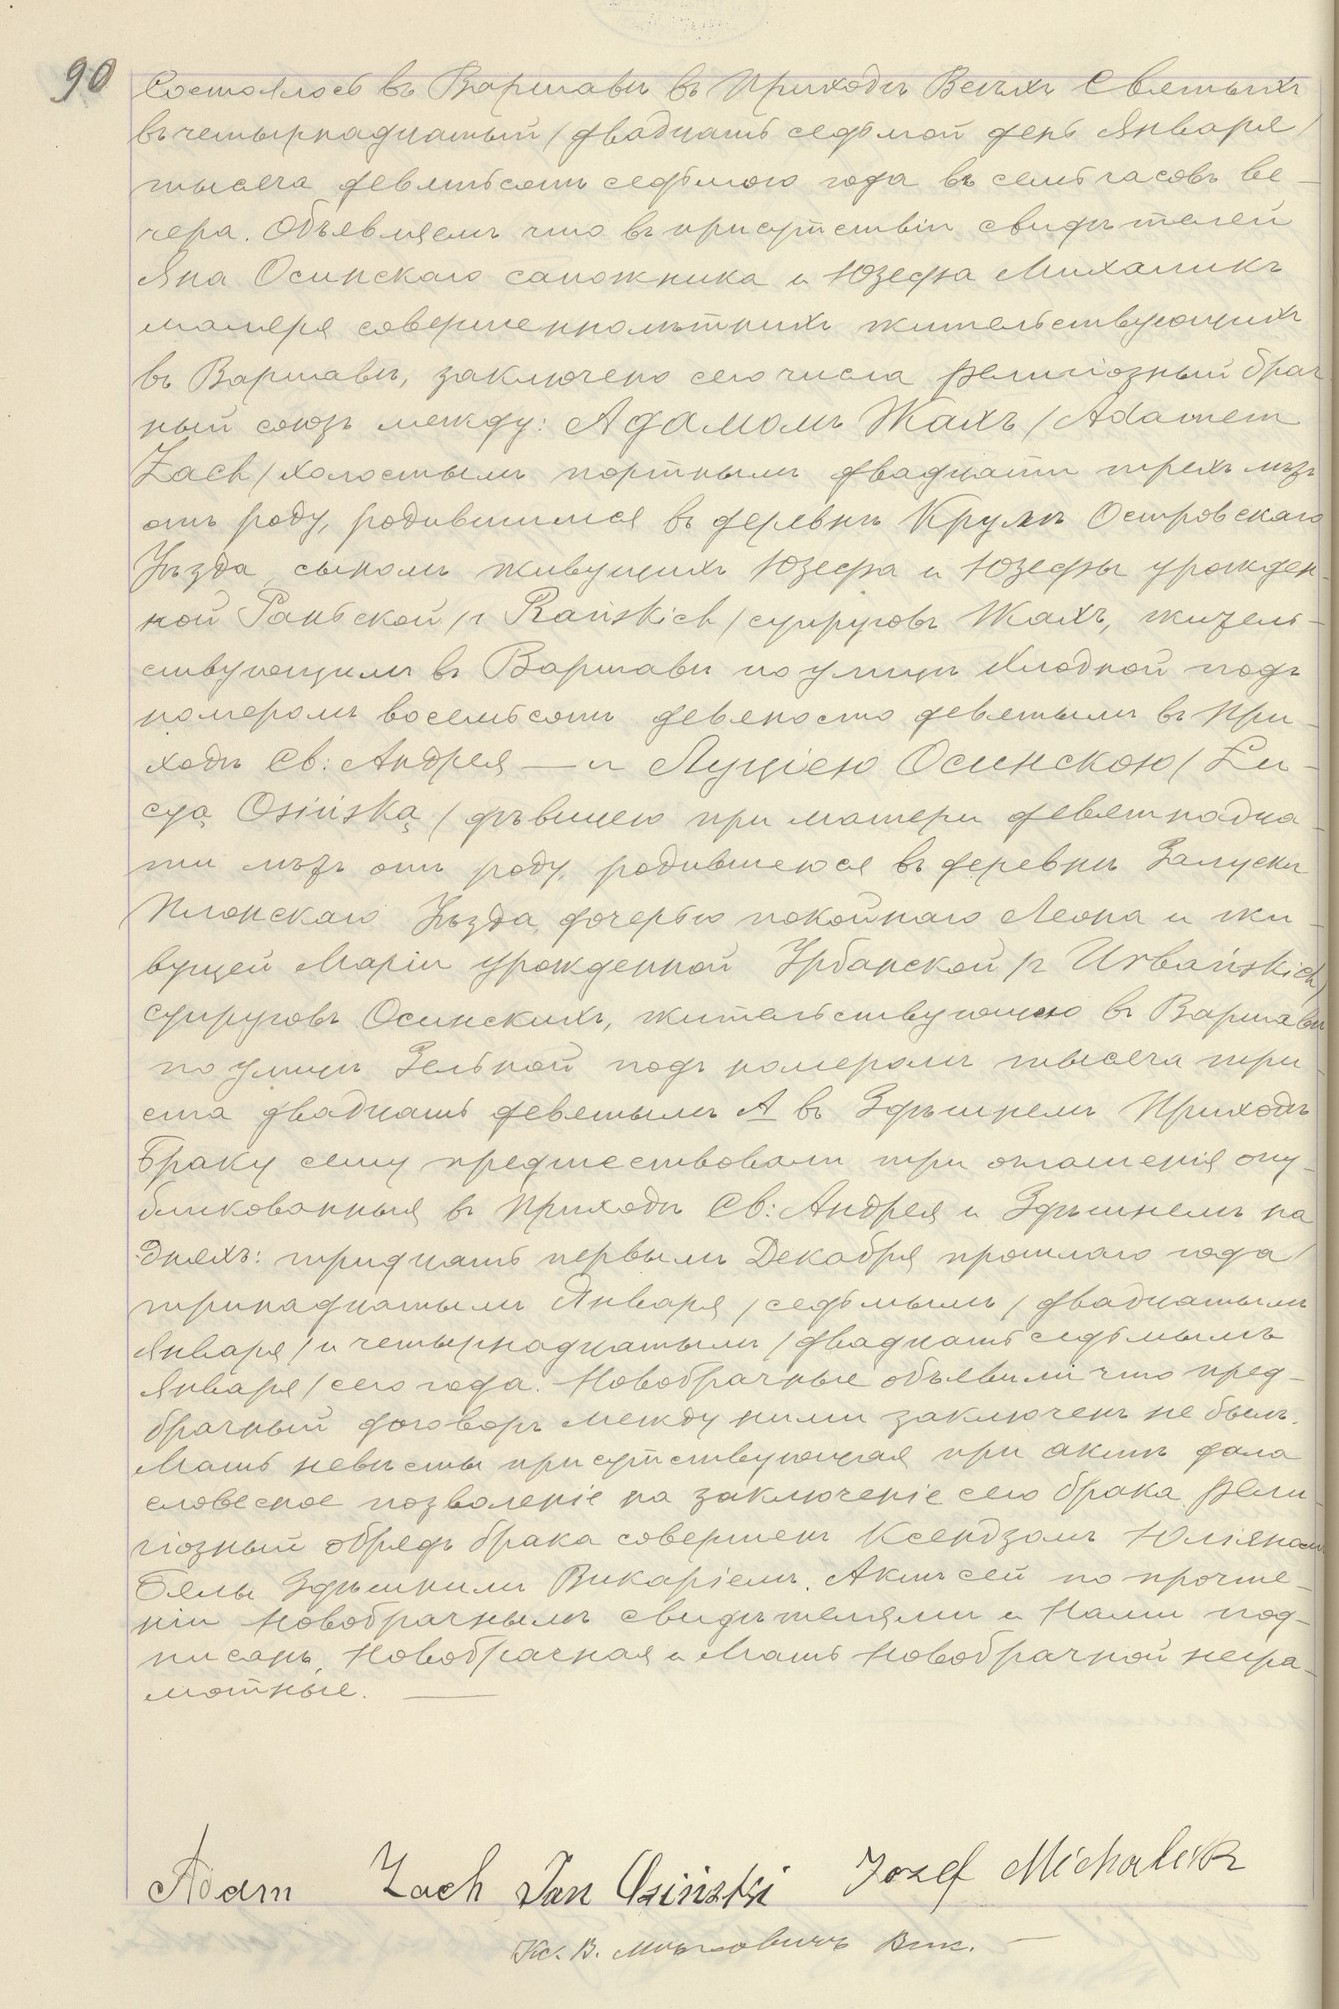 90
Состоялось въ Варшавѣ въ Приходѣ Всѣхъ Святыхъ
въ четырнадцатый / двадцать седьмой день Января /
тысяча девятьсотъ седьмого года въ семь часовъ ве-
чера. Объявляемъ что въ присутствіи свидѣтелей
Яна Осинскаго сапожника и Юзефа Михаликъ
маляра совершеннолѣтнихъ жительствующихъ
въ Варшавѣ, заключено сего числа религіозный брач
ный союзъ между: Адамомъ Жахъ / Adamem
Zach / холостымъ портнымъ двадцати трехъ лѣтъ
отъ роду, родившимся въ деревнѣ Островскаго
Уѣзда, сыномъ живущихъ Юзефа и Юзефы урожден-
ной Раньской / z Rańskich / супруговъ Жахъ, житель-
ствующимъ въ Варшавѣ по улицѣ Хлодной подъ
номеромъ восемьсотъ девяносто девятымъ въ При-
ходѣ Св: Андрея — и Луціею Осинскою / Lu-
cyą Osińską / дѣвицею при матери девятнадца-
ти лѣтъ отъ роду, родившеюся въ деревнѣ Залуски
Плонскаго Уѣзда, дочерью покойнаго Леона и жи-
вущей Маріи урожденной Урбанской / z Urbańskich /
супруговъ Осинскихъ, жительствующею въ Варшавѣ
по улицѣ Зельной подъ номеромъ тысяча три-
ста двадцать девятымъ А въ Здѣшнемъ Приходѣ
Браку сему предшествовали три оглашенія опу-
бликованныя въ Приходѣ Св: Андрея и Здѣшнемъ на
дняхъ: тридцать первымъ Декабря прошлаго года /
тринадцатымъ Января / седьмымъ / двадцатымъ
Января / и четырнадцатымъ / двадцать седьмымъ
Января / сего года. Новобрачные объявили что пред-
брачный договоръ между ними заключенъ не былъ.
Мать невѣсты присутствующая при актѣ дала
словесное позволеніе на заключеніе сего брака. Рели-
гіозный обрядъ брака совершенъ Ксендзомъ Юліяномъ
Бялы Здѣшнимъ Викаріемъ. Актъ сей по прочте-
ніи Новобрачнымъ свидѣтелями и Нами под-
писанъ, Новобрачная и Мать Новобрачной негра-
мотные. —
Adam Zach Jan Osiński Jozef Michalik
Кс. В. Вик. —